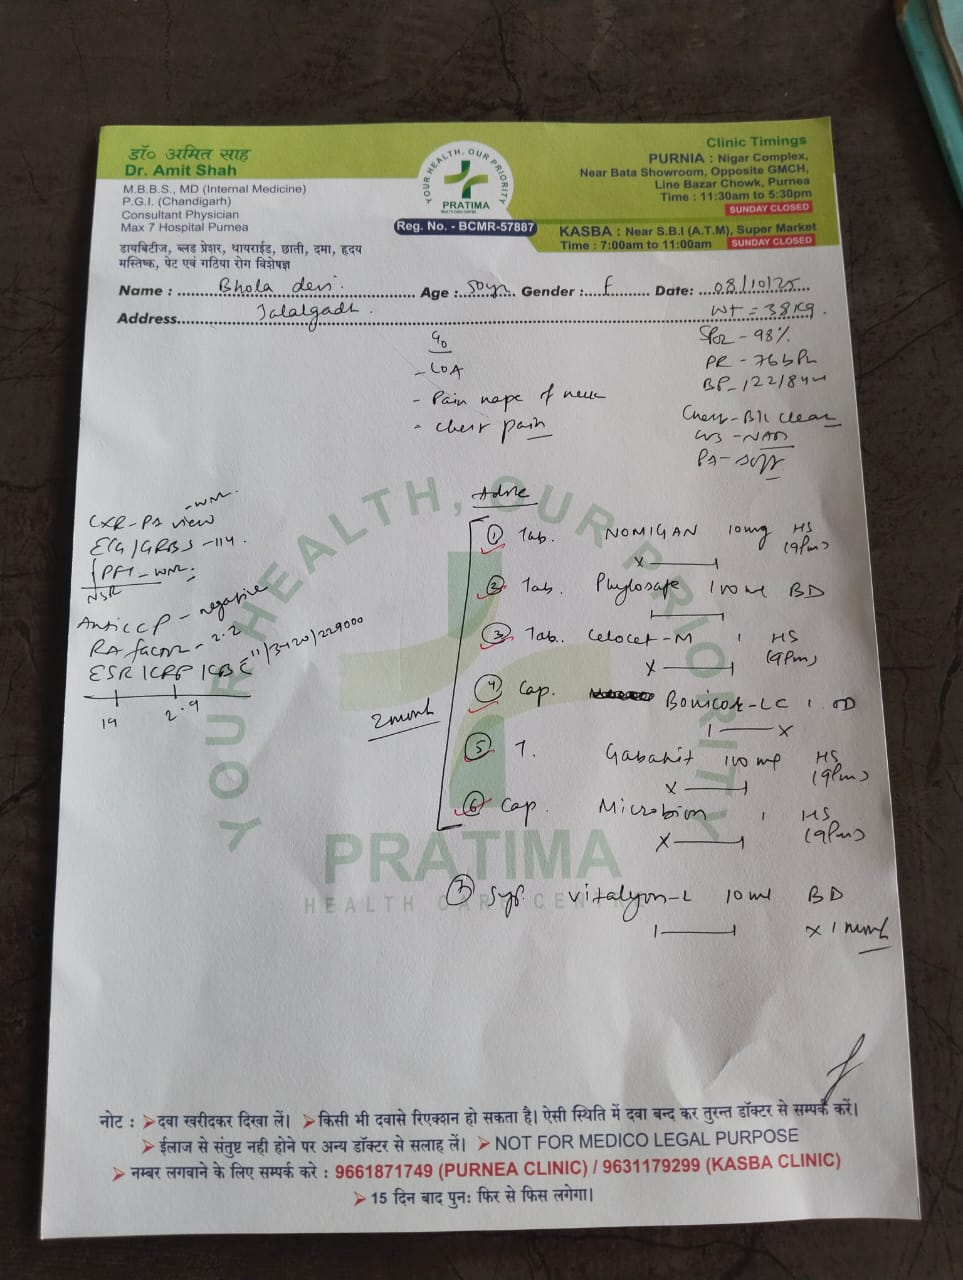 डॉ० अमित साह
Dr. Amit Shah
M.B.B.S., MD (Internal Medicine)
P.G.I. (Chandigarh)
Consultant Physician
Max 7 Hospital Purnea
डायबिटीज, ब्लड प्रेशर, थायराईड, छाती, दमा, हृदय
मस्तिष्क, पेट एवं गठिया रोग विशेषज्ञ
YOUR HEALTH, OUR PRIORITY
PRATIMA
HEALTH CARE CENTRE
Reg. No. - BCMR-57887
Clinic Timings
PURNIA : Nigar Complex,
Near Bata Showroom, Opposite GMCH,
Line Bazar Chowk, Purnea
Time : 11:30am to 5:30pm
SUNDAY CLOSED
KASBA : Near S.B.I (A.T.M), Super Market
Time : 7:00am to 11:00am SUNDAY CLOSED
Name : Bhola devi Age : 50yr Gender : f Date: 08/10/25
Address Jalalgadh WT = 38 Kg
SPO2 - 98%
PR - 76 bPm
BP - 122/84
Chest - B/L clear
CVS - NAD
PA - Soft
C/o
- LOA
- Pain nape of neck
- chest pain
CXR - PA view - WNL
ECG / GRBS - 114
PFT - WNL
NSR
Anti CCP - negative
RA factor - 2.2
ESR / CRP / CBC 11/3420/229000
19 2.9
Advice
① Tab. NOMIGAN 10mg HS
(9Pm)
X
② Tab. Phylosafe 100 mg BD
③ Tab. Celocet-M 1 HS
(9Pm)
X
④ Cap. Bonicok-LC 1 OD
X
2 month
⑤ T. Gabahit 100 mg HS
(9Pm)
X
⑥ Cap. Microbion 1 HS
(9Pm)
X
⑦ Syp. Vitalyon-L 10 ml BD
X 1 month
YOUR HEALTH, OUR PRIORITY
PRATIMA
HEALTH CARE CENTRE
नोट : दवा खरीदकर दिखा लें। किसी भी दवासे रिएक्शन हो सकता है। ऐसी स्थिति में दवा बन्द कर तुरन्त डॉक्टर से सम्पर्क करें।
ईलाज से संतुष्ट नही होने पर अन्य डॉक्टर से सलाह लें। NOT FOR MEDICO LEGAL PURPOSE
नम्बर लगवाने के लिए सम्पर्क करे : 9661871749 (PURNEA CLINIC) / 9631179299 (KASBA CLINIC)
15 दिन बाद पुनः फिर से फिस लगेगा।